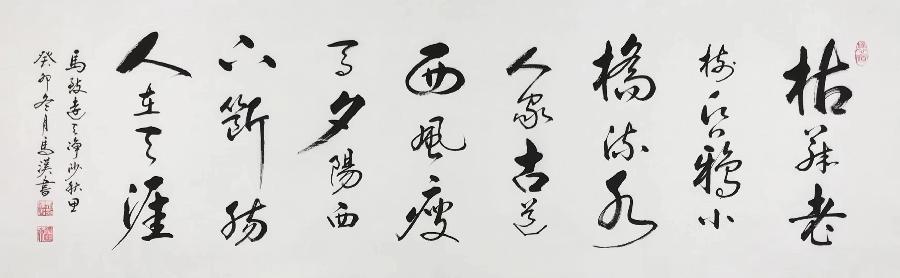 枯藤老
樹昏鴉小
橋流水
人家古道
西風瘦
馬夕陽西
下斷腸
人在天涯
馬致遠天淨沙秋思
癸卯冬月馬漢書